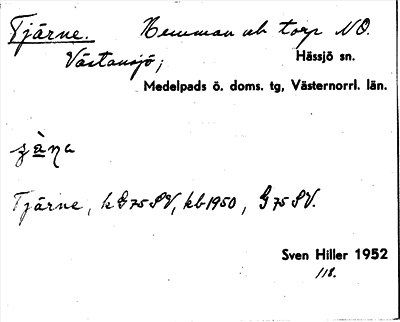 Tjärne. Hemman ub torp NO.
Västansjö; Hässjö sn.
Medelpads ö. doms. tg, Västernorrl. län.
Tjärne, k G 75 SV, kb 1950, G 75 SV.
Sven Hiller 1952
118.